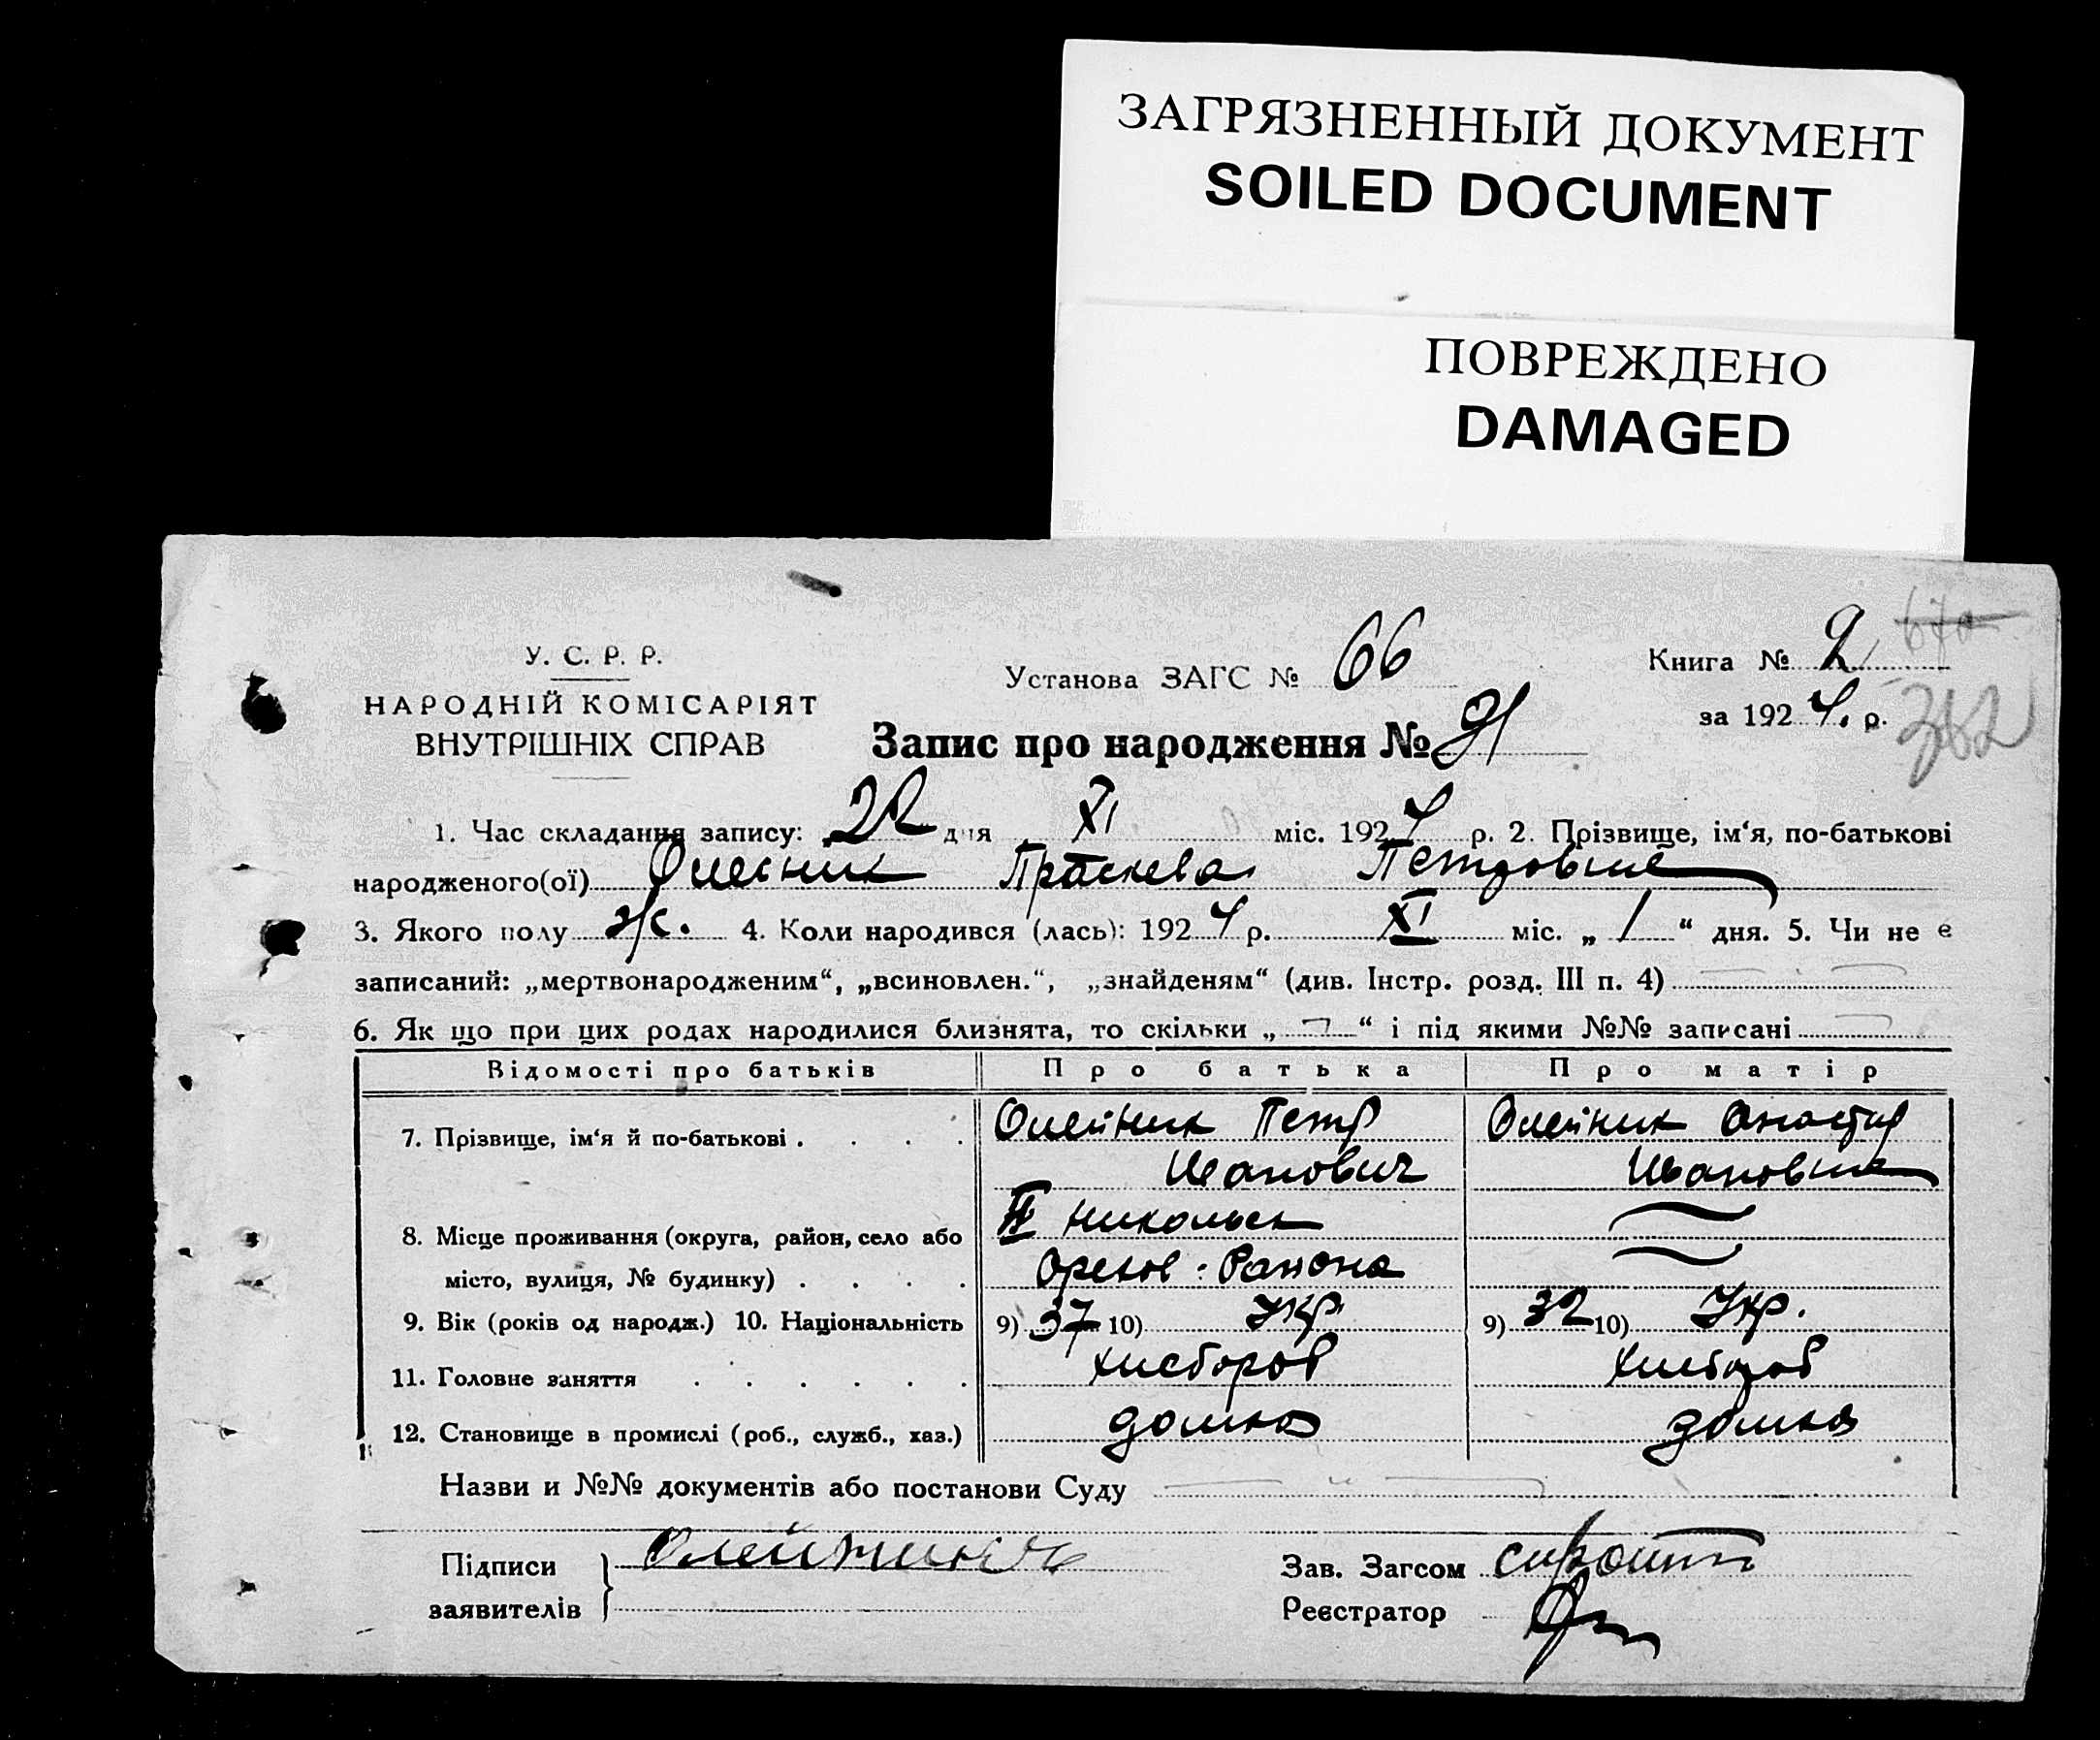 ЗАГРЯЗНЕННЫЙ ДОКУМЕНТ
SOILED DOCUMENT
ПОВРЕЖДЕНО
DAMAGED
У. С. Р. Р.
НАРОДНІЙ КОМІСАРІЯТ
ВНУТРІШНІХ СПРАВ
Установа ЗАГС № 66
Запис про народження № 91
Книга № 2
за 1924. р.
382
1. Час складання запису: 22 дня XI міс. 1924 р. 2. Прізвище, ім‘я, по-батькові
народженого(ої) Олейник Праскева Петровна
3. Якого полу ж. 4. Коли народився (лась): 1924 р. XI міс. „ 1 “ дня. 5. Чи не є
записаний: „мертвонародженим“, „всиновлен.“, „знайденям“ (див. Інстр. розд. III п. 4)
6. Як що при цих родах народилися близнята, то скільки „ “ і під якими №№ записані
Відомості про батьків Про батька Про матір
7. Прізвище, ім‘я й по-батькові . . . . Олейник Петр Олейник Анастас
Иванович Ивановна
8. Місце проживання (округа, район, село або II Никольск
місто, вулиця, № будинку) . . . . Орехов. Района
9. Вік (років од народж.) 10. Національність 9) 37 10) Укр. 9) 32 10) Укр.
11. Головне заняття . . . . . . хлебороб хлебороб
12. Становище в промислі (роб., служб., хаз.)
Назви и №№ документів або постанови Суду
Підписи Олейник Зав. Загсом
заявителів Реєстратор